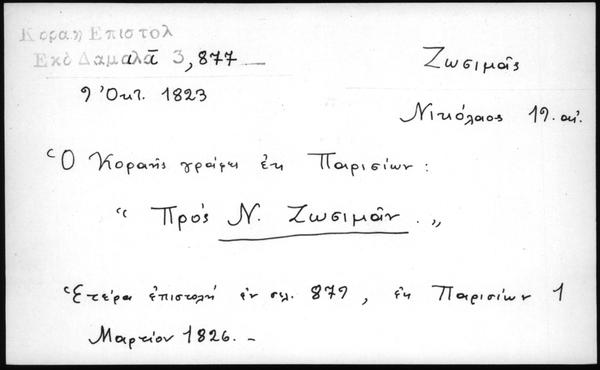 Κοραη Επιστολ
Εκδ Δαμαλᾶ 3, 877
Ζωσιμᾶς
9 Ὀκτ. 1823
Νικόλαος 19. αἰ.
Ὁ Κοραῆς γράφει ἐκ Παρισίων :
“ Πρός Ν. Ζωσιμᾶν . „
Ἑτέρα ἐπιστολή ἐν σελ. 879, ἐκ Παρισίων 1
Μαρτίου 1826. –